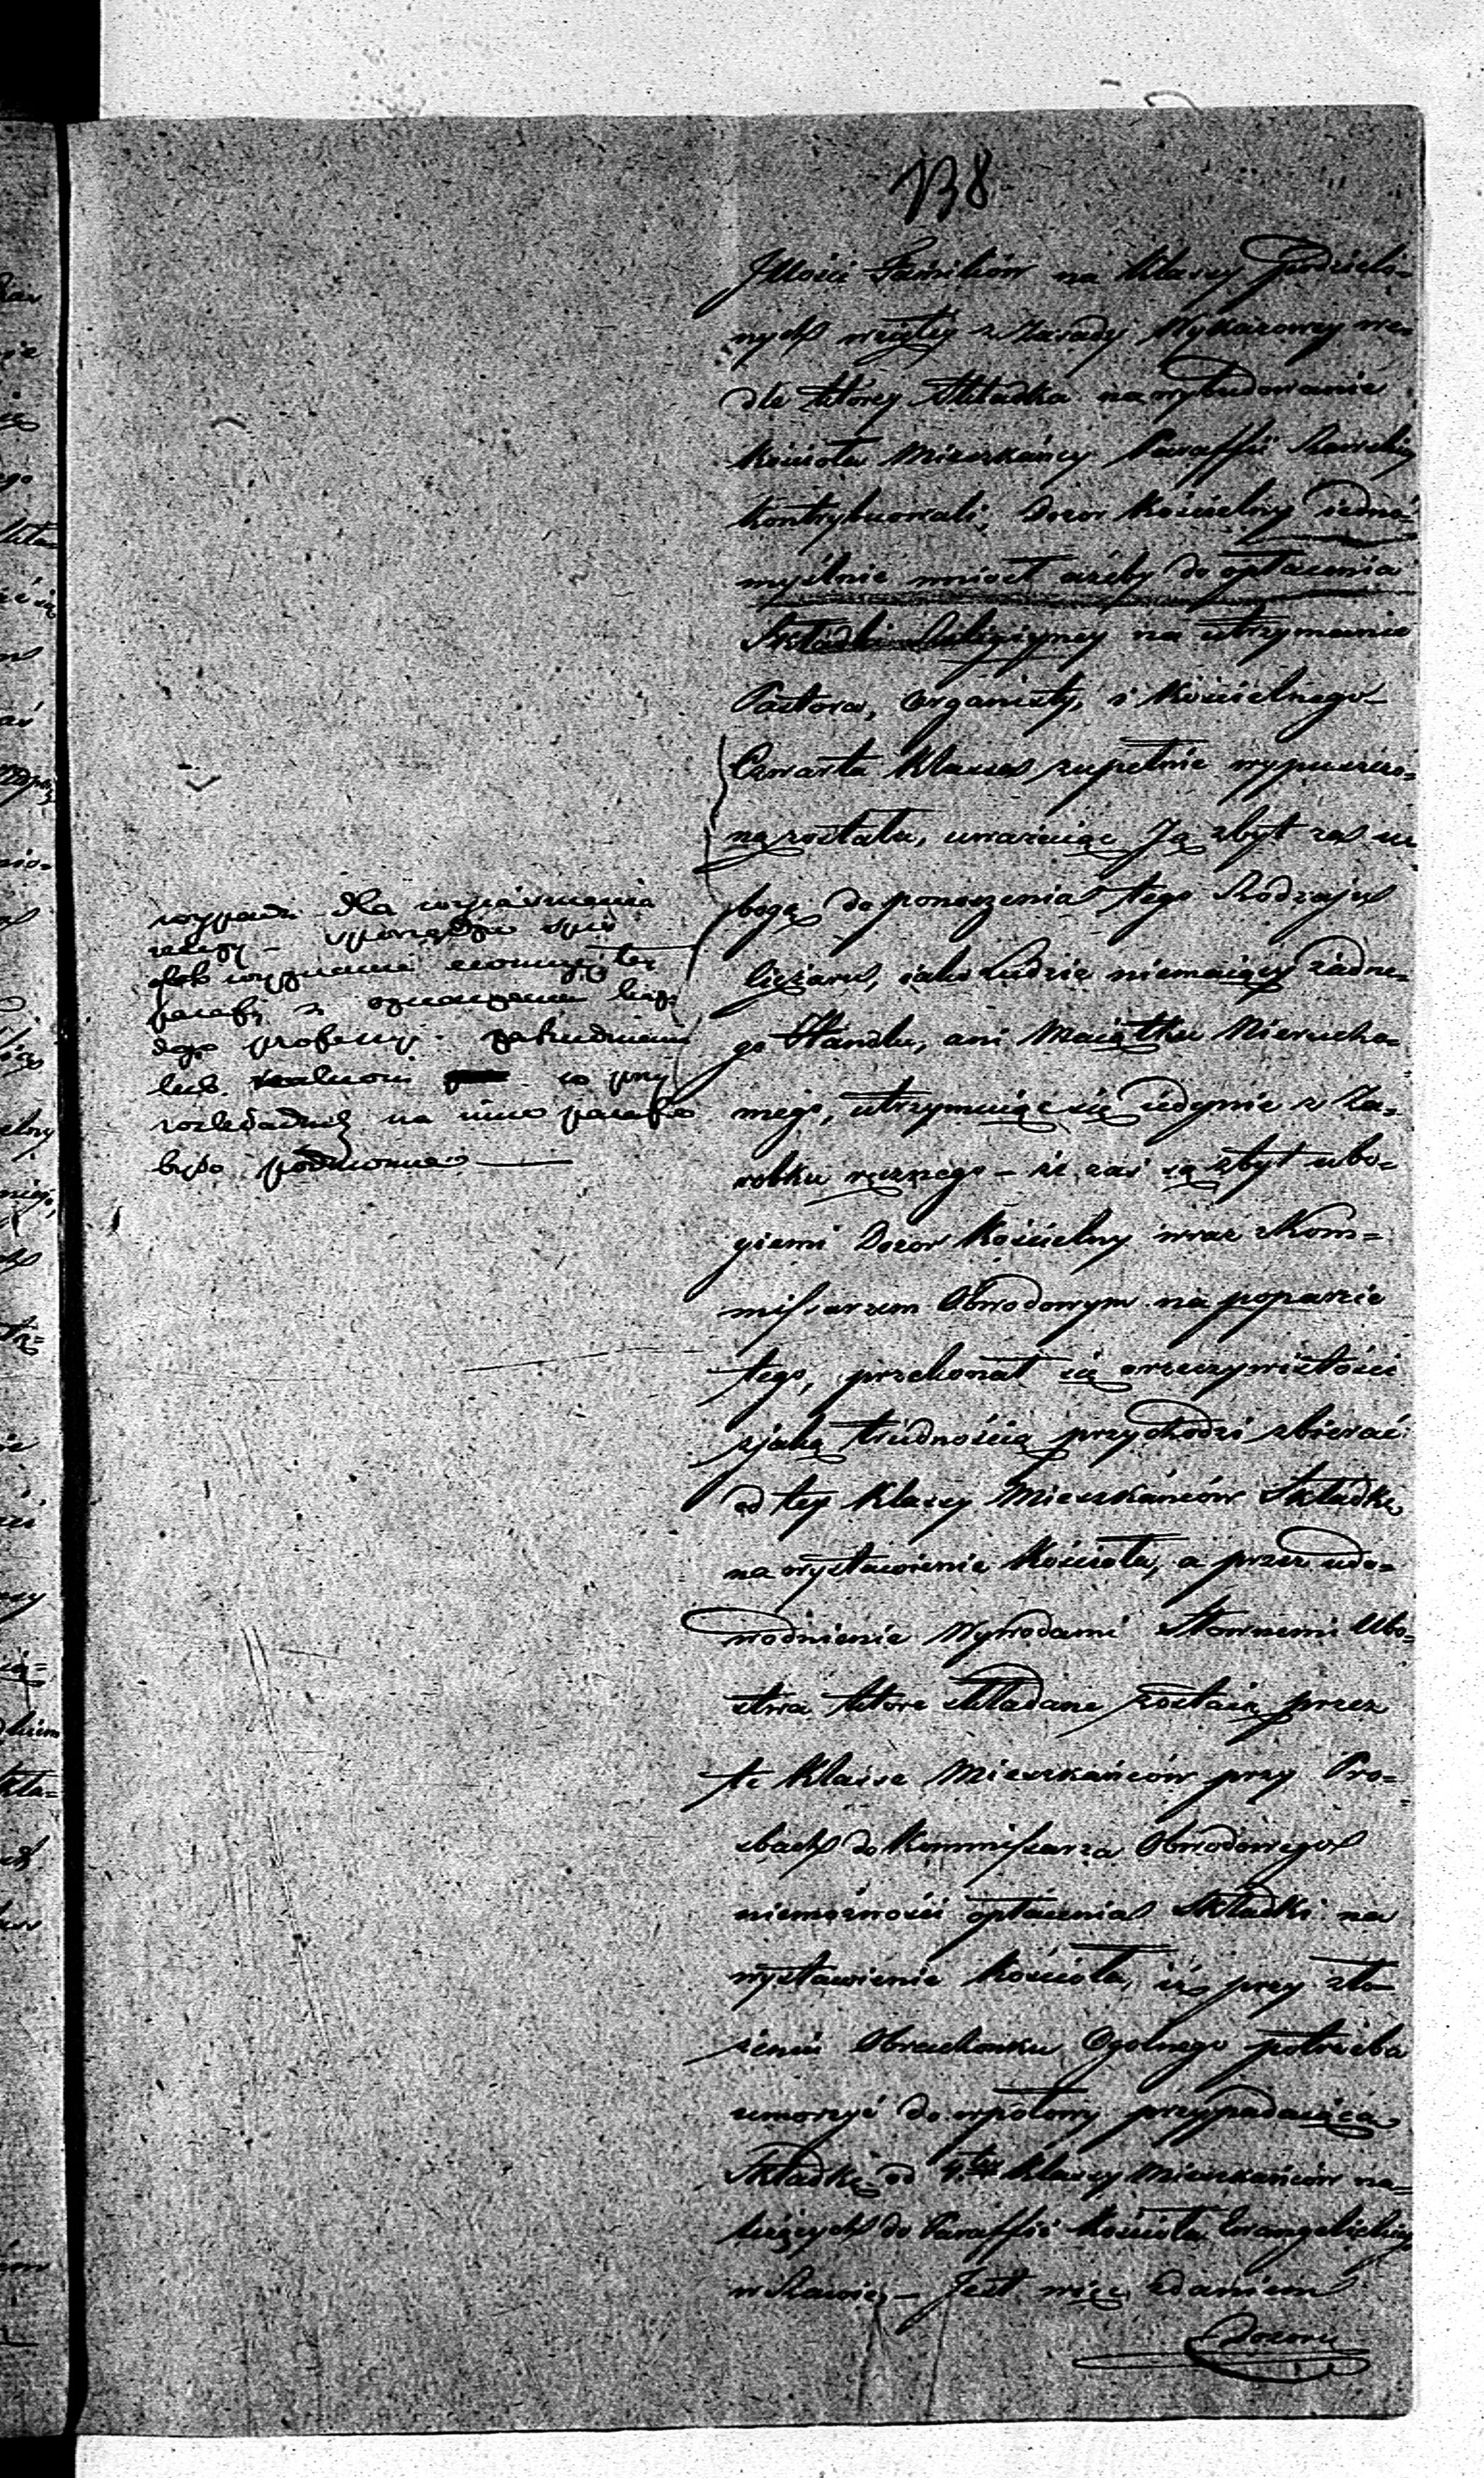 138
Jllości Familiów na Klassy Podzielo=
nych wziętey z Zasady Wykazowey we=
dle którey Składka na wybudowanie
Kościoła Mieszkańcy Paraffii Rawskiey
kontrybuowali, Dozor Kościelny iedno=
myślnie wniosł ażeby do opłacenia
Składki Religiyney na utrzymanie
Pastora, Organisty, i Kościelnego
Czwarta Klassa zupełnie wypuszczo=
ną została, uważaiąc Ją zbyt za u=
bogą do ponoszenia tego Rodzaju
ciężaru, jako Ludzie niemaiący żadne=
go Handlu, ani Maiątku Nierucho=
mego, utrzymuiąc się iedynie z Za=
robku ręcznego – że zaś są zbyt ubo=
giemi Dozor Kościelny wraz z Kom=
missarzem Obwodowym na poparcie
tego, przekonał się w rzeczywistości
z jaką trudnością przychodzi zbierać
od tey Klassy Mieszkańców Składkę
na wystawienie Kościoła, a przez udo=
wodnienie Wywodami Słownemi Ubo=
stwa które składane zostaią przez
te Klasse Mieszkańców przy Pro=
zbach do Kommissarza Obwodowego
niemożności opłacenia Składki na
wystawienie Kościoła, iż przy zło
żeniu Obrachunku Ogolnego potrzeba
umorzyć do wpołowy przypadaiącą
Składkę od 4.tey Klassy Mieszkańców na=
leżących do Paraffii Kościoła Ewangelickiey
w Rawie, – Jest więc zdaniem
Dozoru
wypada dla wyiaśnienia
rzeczy – sporządzić spis
osob wyznania tey
parafii z oznaczeniem każ
dego professyi zatrudnienia
lub co przy
rozkładach na inne parafie
było